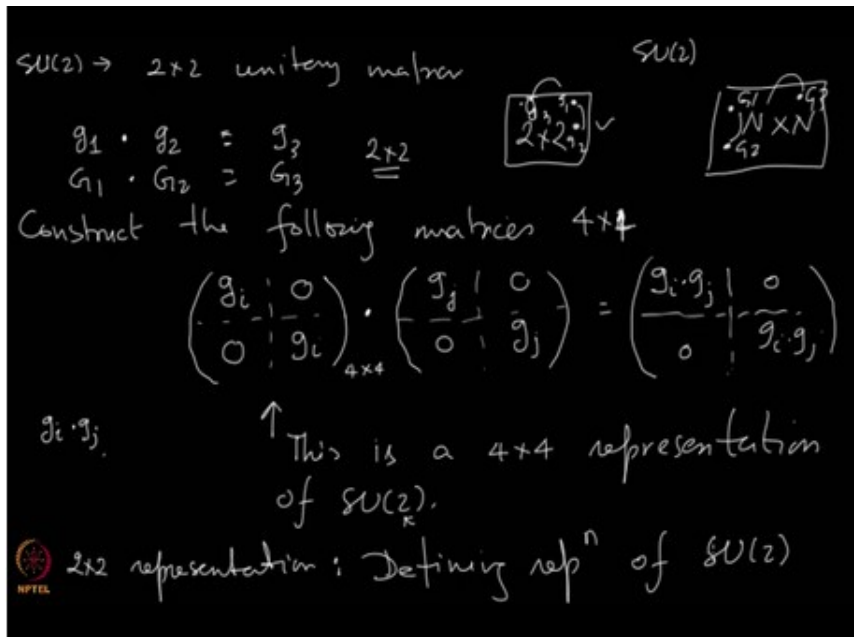 SU(2) → 2×2 unitary matrix
SU(2)
g1 · g2 = g3
G1 · G2 = G3
2×2
g3 g1
2×2 g2 ✓
G1 G3
N×N
G2
Construct the following matrices 4×4
(gi 0 0 gi)4×4 · (gj 0 0 gj) = (gi·gj 0 0 gi·gj)
gi·gj.
↑ This is a 4×4 representation
of SU(2).
2×2 representation : Defining repn of SU(2)
NPTEL